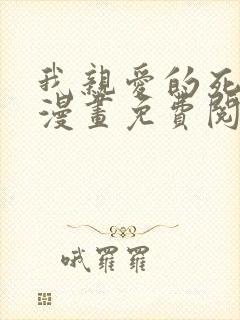 我親愛的死
漫畫免費閱
哦羅羅